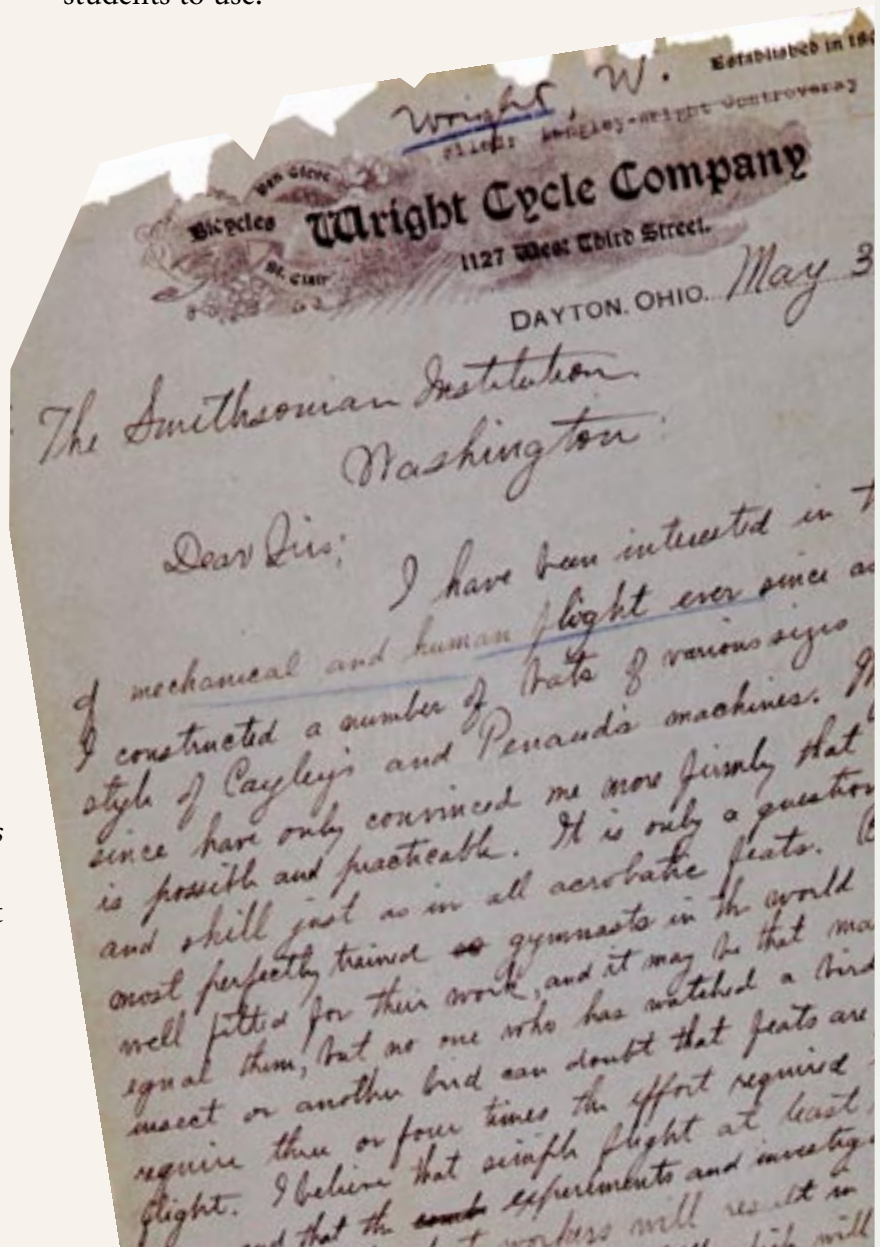 students to use.
Wright, W. Established in 189
Filed: Langley-Wright Controversy
Van Cleve
Bicycles Wright Cycle Company
St. Clair
1127 West Third Street.
DAYTON, OHIO. May 3
The Smithsonian Institution
Washington
Dear Sirs;
I have been interested in
of mechanical and human flight ever since a
I constructed a number of bats of various sizes
style of Cayley's and Penaud's machines.
since have only convinced me more firmly that
is possible and practicable. It is only a question
and skill just as in all acrobatic feats.
most perfectly trained gymnasts in the world
well fitted for their work, and it may be that ma
equal them, but no one who has watched a bird
insect or another bird can doubt that feats are
require three or four times the effort required
flight. I believe that simple flight at least
and that the experiments and investig
workers will result in
which will